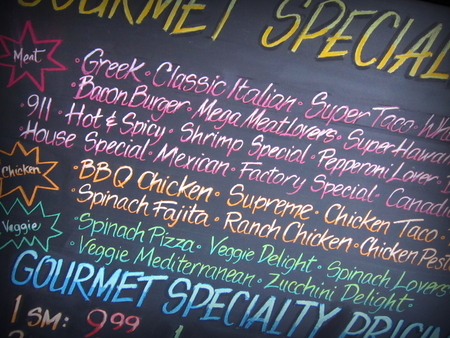 GOURMET SPECIAL
Meat
Greek · Classic Italian · Super Taco · Wh
Bacon Burger · Mega Meat Lovers · Super Hawai
911 · Hot & Spicy · Shrimp Special · Pepperoni Lover ·
House Special · Mexican · Factory Special · Canadi
Chicken
BBQ Chicken · Supreme · Chicken Taco ·
Spinach Fajita · Ranch Chicken · Chicken Pest
Veggie
Spinach Pizza · Veggie Delight · Spinach Lovers
Veggie Mediterranean · Zucchini Delight ·
GOURMET SPECIALTY PRICIN
1 SM: 9.99